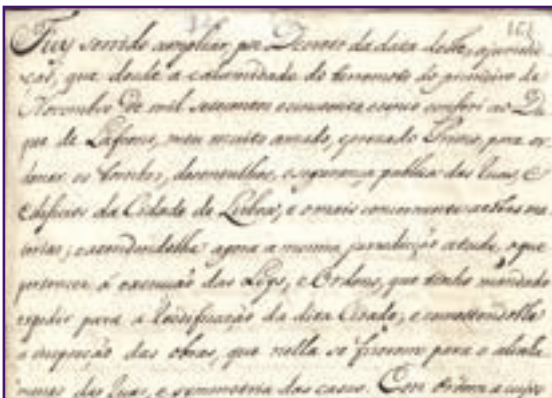 Fuy servido ampliar, por Decreto da data deste, a jurisdi-
çaõ, que desde a calamidade do terremoto do primeiro de
Novembro de mil setecentos cincoenta e cinco conferi ao Du-
que de Lafoens, meu muito amado, e prezado Primo, para or-
denar os tombos, desentulhos, e segurança publica das Ruas, e
Edificios da Cidade de Lisboa, e o mais concernente a estas ma-
terias; extendendolhe agora a mesma jurisdiçaõ a tudo, o que
pertence á execuçaõ das Leys, e Ordens, que tenho mandado
expedir para a reedificaçaõ da dita Cidade, e comettendolhe
a inspecçaõ das obras, que nella se fizerem para o alinha-
mento das Ruas, e symmetria das casas. Com